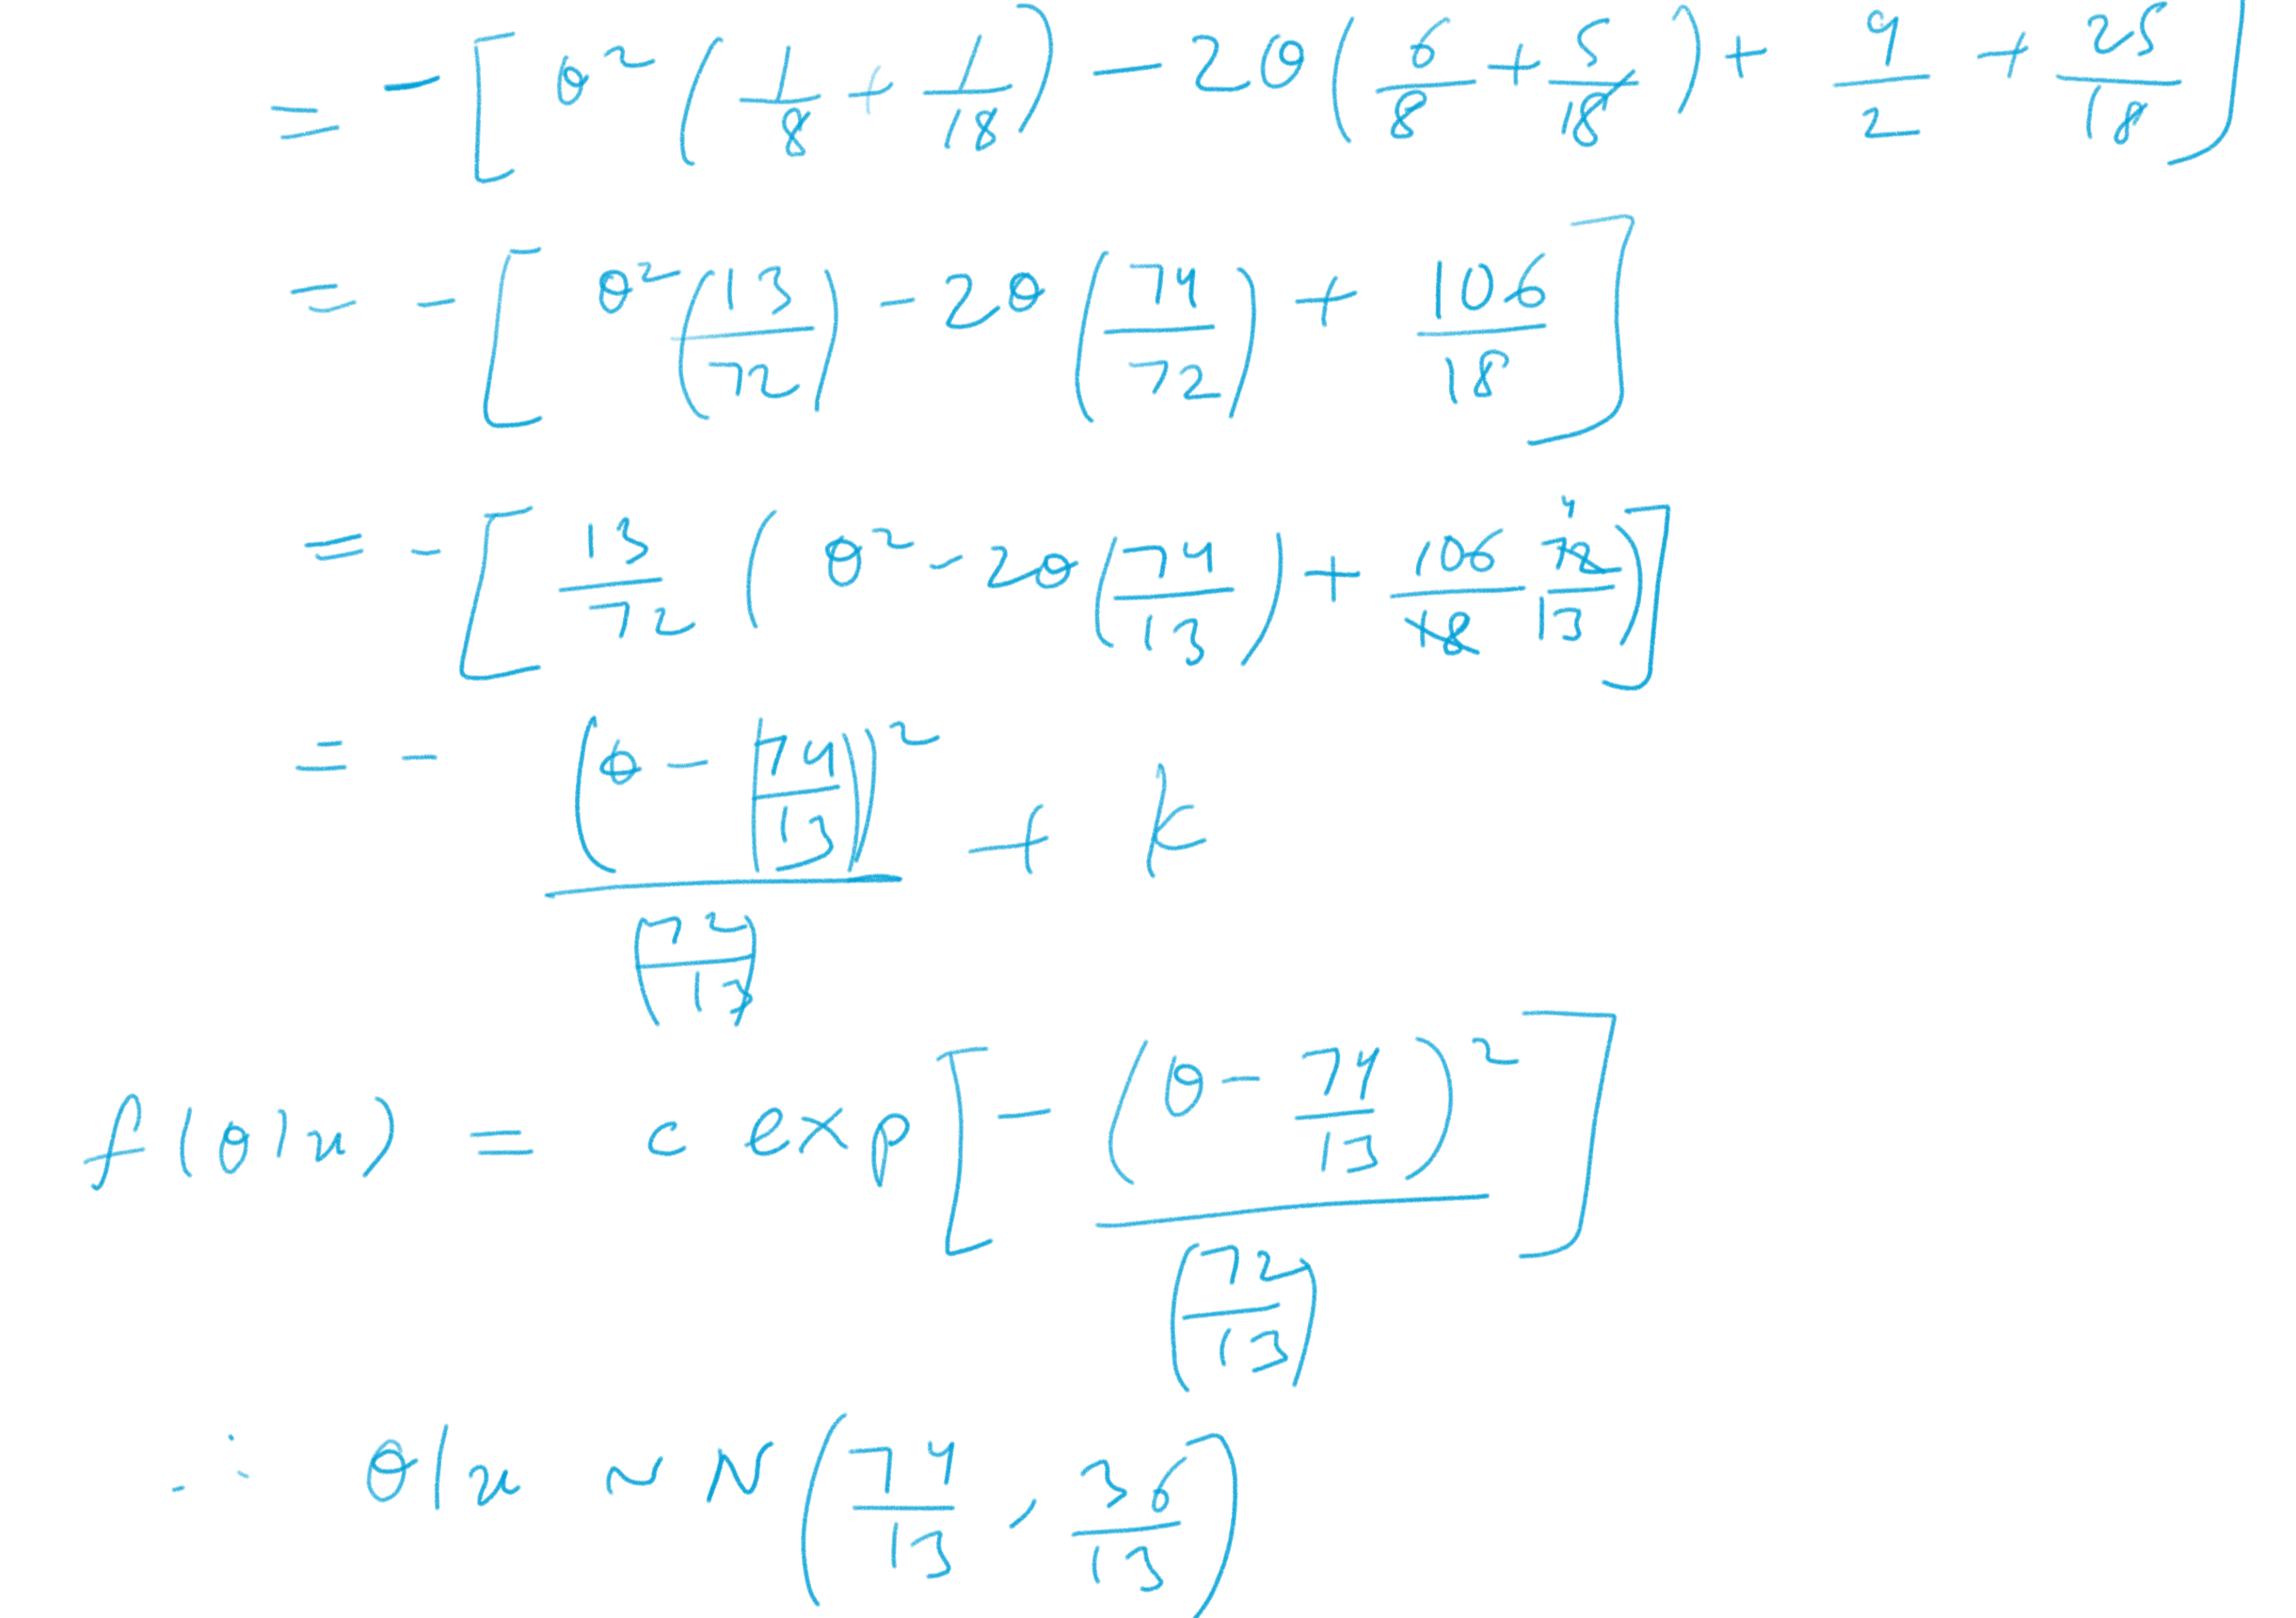 = - [ θ² ( 1/8 + 1/18 ) - 2θ ( 6/8 + 5/18 ) + 9/2 + 25/18 ]
= - [ θ² ( 13/72 ) - 2θ ( 74/72 ) + 106/18 ]
= - [ 13/72 ( θ² - 2θ ( 74/13 ) + 106/18 72/13 4 ) ]
= - ( θ - ( 74/13 ) )² / ( 72/13 ) + k
f(θ|x) = c exp [ - ( θ - 74/13 )² / ( 72/13 ) ]
∴ θ|x ~ N ( 74/13 , 36/13 )